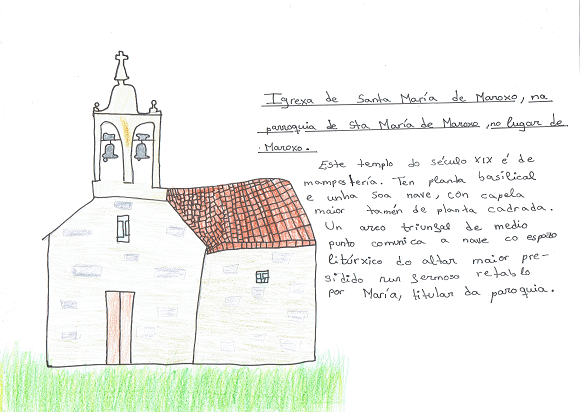 Igrexa de Santa María de Maroxo, na
parroquia de Sta María de Maroxo, no lugar de
Maroxo.
Este templo do século XIX é de
mampostería. Ten planta basilical
e unha soa nave, con capela
maior tamén de planta cadrada.
Un arco triunfal de medio
punto comunica a nave co espazo
litúrxico do altar maior pre-
sidido nun fermoso retablo
por María, titular da paroquia.